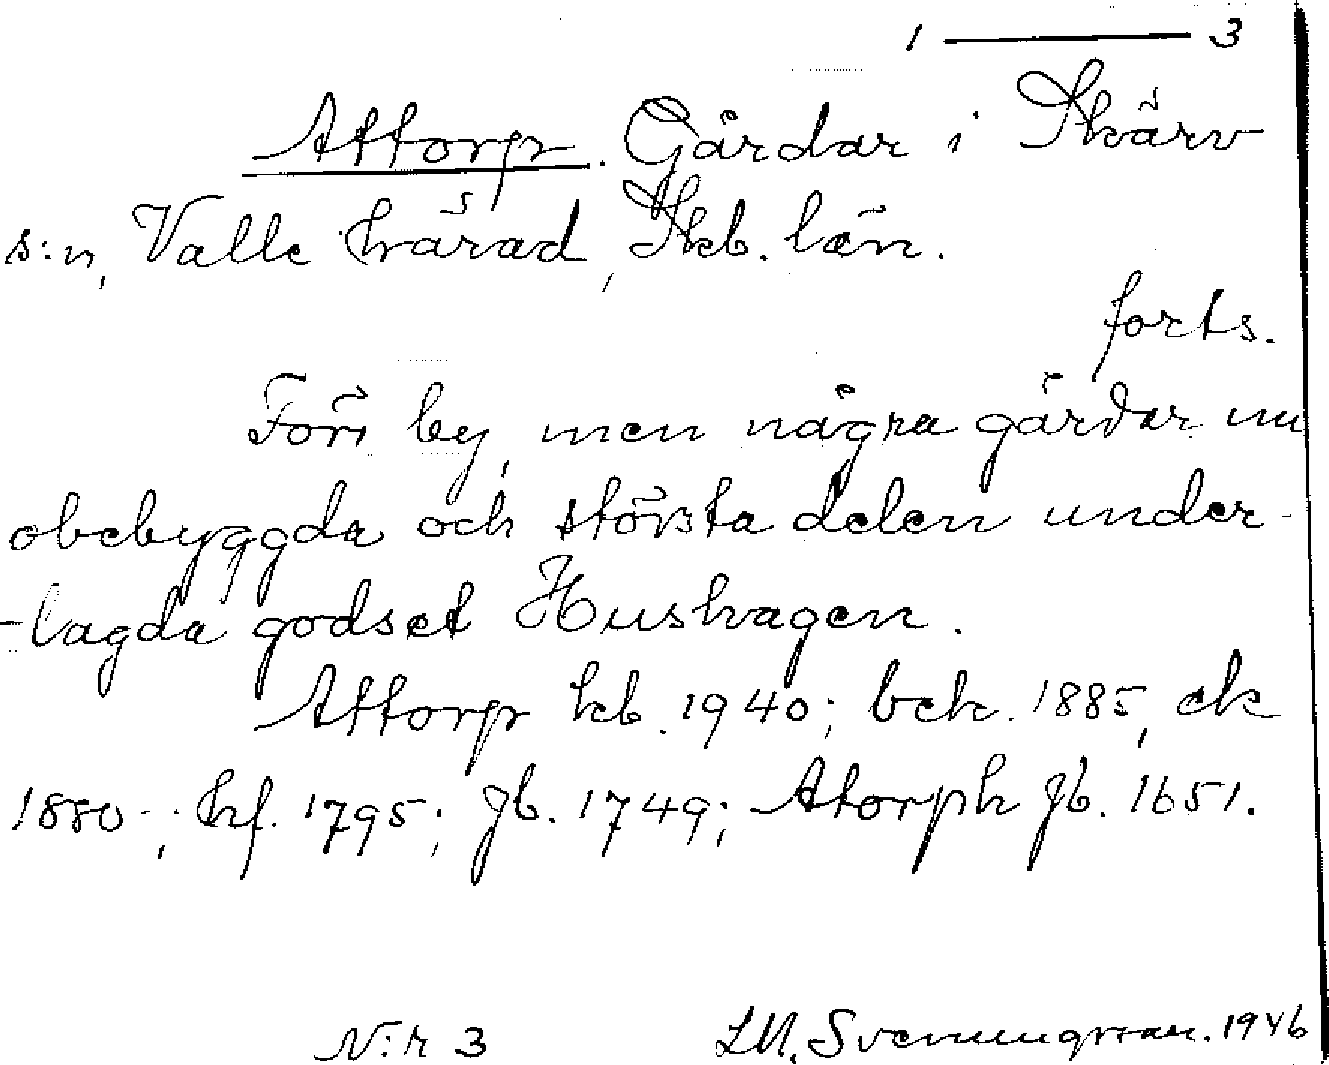 1 — 3
Attorp. Gårdar i Skärv
s:n, Valle härad, Skb. län.
forts.
Förr by, men några gårdar nu
obebyggda och största delen under-
-lagda godset Hushagen.
Attorp kb. 1940; bek. 1885, ek
1880; hf. 1795; jb. 1749; Atorph jb. 1651.
N:r 3 LM. Svenungsson. 1946